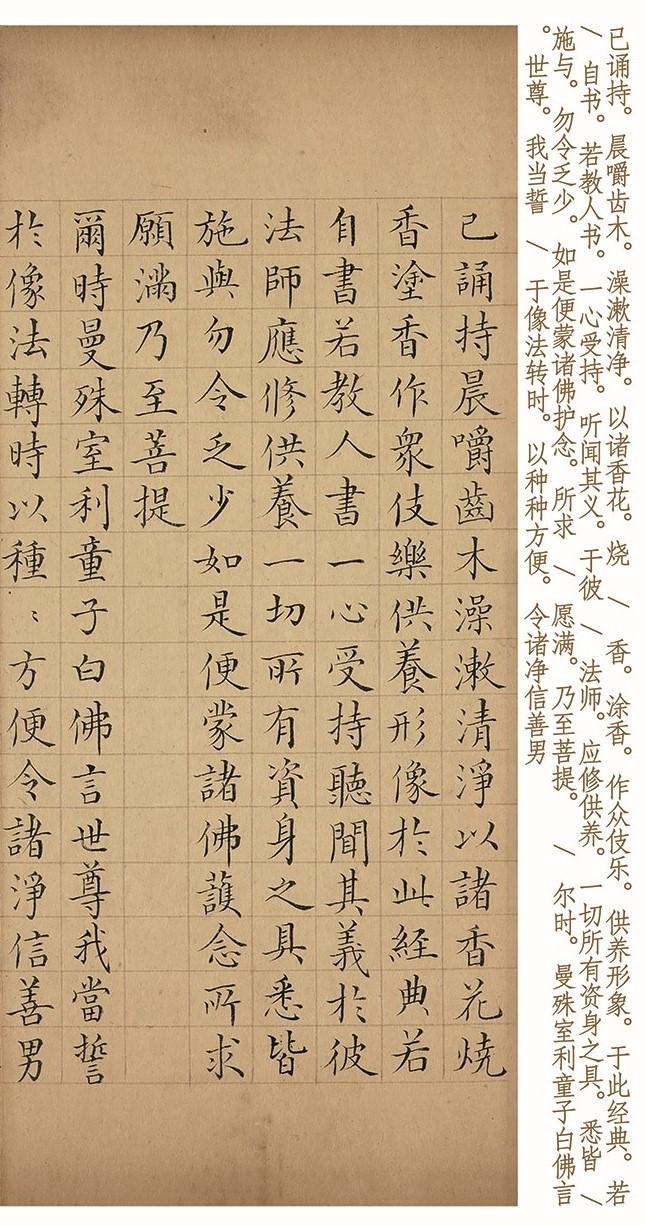 已诵持。晨嚼齿木。澡漱清净。以诸香花。烧 \ 香。涂香。作众伎乐。供养形象。于此经典。若
\ 自书。若教人书。一心受持。听闻其义。于彼 \ 法师。应修供养。一切所有资身之具。悉皆 \
施与。勿令乏少。如是便蒙诸佛护念。所求 \ 愿满。乃至菩提。 \ 尔时。曼殊室利童子白佛言
。世尊。我当誓 \ 于像法转时。以种种方便。令诸净信善男
已誦持晨嚼齒木澡漱清淨以諸香花燒
香塗香作衆伎樂供養形像於此經典若
自書若教人書一心受持聽聞其義於彼
法師應修供養一切所有資身之具悉皆
施與勿令乏少如是便蒙諸佛護念所求
願滿乃至菩提
爾時曼殊室利童子白佛言世尊我當誓
於像法轉時以種〻方便令諸淨信善男